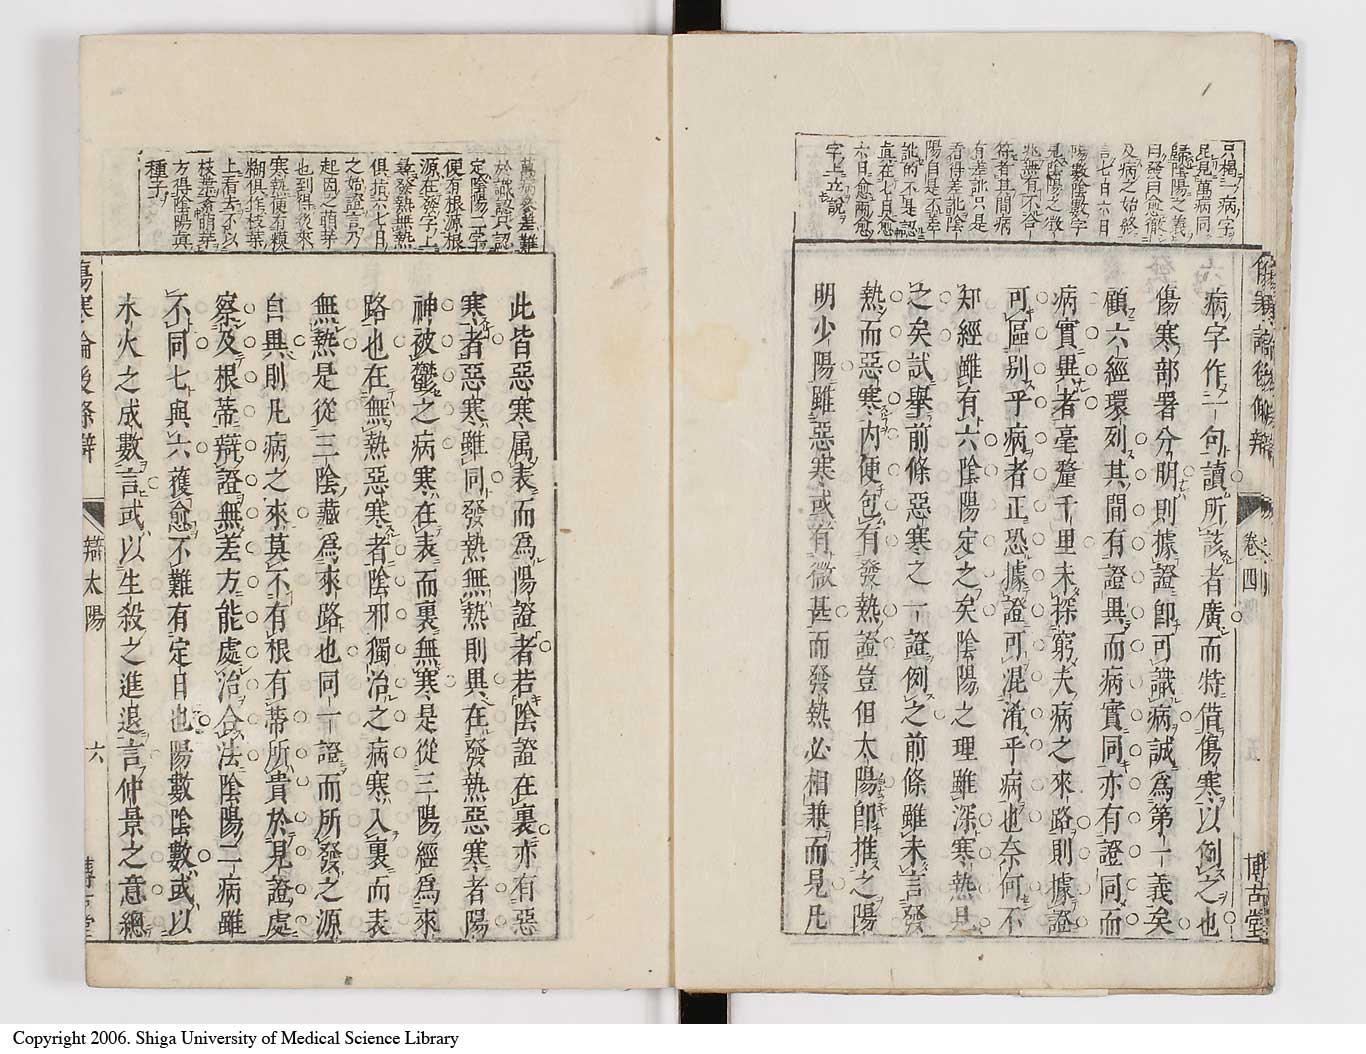 只揭一病字
足見萬病同
歸陰陽之義
曰發曰愈徹
及病之始終
言七日六日
陽數陰數字
見陰陽之徵
兆無有不合
符者其間病
有差訛只是
看得差訛陰
陽自是不差
訛的不是認
真在七日愈
六日愈兩愈
字上立說
病字作一句讀所該者廣而特借傷寒以例之也
傷寒部署分明則據證卽可識病誠爲第一義矣
顧六經環列其間有證異而病實同亦有證同而
病實異者毫釐千里未探窮夫病之來路則據證
可區别乎病者正恐據證可混淆乎病也奈何不
知經雖有六陰陽定之矣陰陽之理雖深寒熱見
之矣試舉前條惡寒之一證例之前條雖未言發
熱而惡寒内便包有發熱證豈但太陽卽推之陽
明少陽雖惡寒或有微甚而發熱必相兼而見凡
卷四
博古堂
萬病發差難
於識認只認
定陰陽二字
便有根源根
源在發字上
尋發熱無熱
俱抗六七日
之始證言乃
起因之萌芽
也到得後來
寒熱便有模
糊俱作枝葉
上看去不以
枝葉奪萌芽
方得陰陽真
種子
此皆惡寒属表而爲陽證者若陰證在裏亦有惡
寒者惡寒雖同發熱無熱則異在發熱惡寒者陽
神被鬱之病寒在表而裏無寒是從三陽經爲來
路也在無熱惡寒者陰邪獨治之病寒入裏而表
無熱是從三陰藏爲來路也同一證而所發之源
自異則凡病之來莫不有根有蒂所貴於見證處
察及根蒂辯證無差方能處治合法陰陽二病雖
不同七與六獲愈不難有定日也陽數陰數或以
水火之成數言或以生殺之進退言仲景之意總
傷寒論後條辯
辯太陽
六